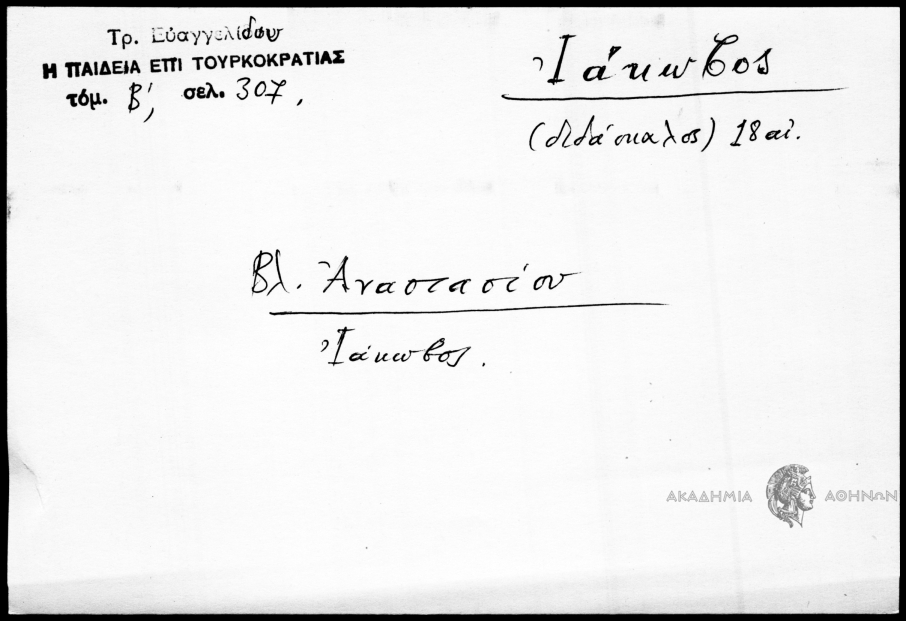 Τρ. Εὐαγγελίδου
Η ΠΑΙΔΕΙΑ ΕΠΙ ΤΟΥΡΚΟΚΡΑΤΙΑΣ
τόμ. Β', σελ. 307.
Ἰάκωβος
(διδάσκαλος) 18 αἰ.
Βλ. Ἀναστασίου
Ἰάκωβος.
ΑΚΑΔΗΜΙΑ ΑΘΗΝΩΝ